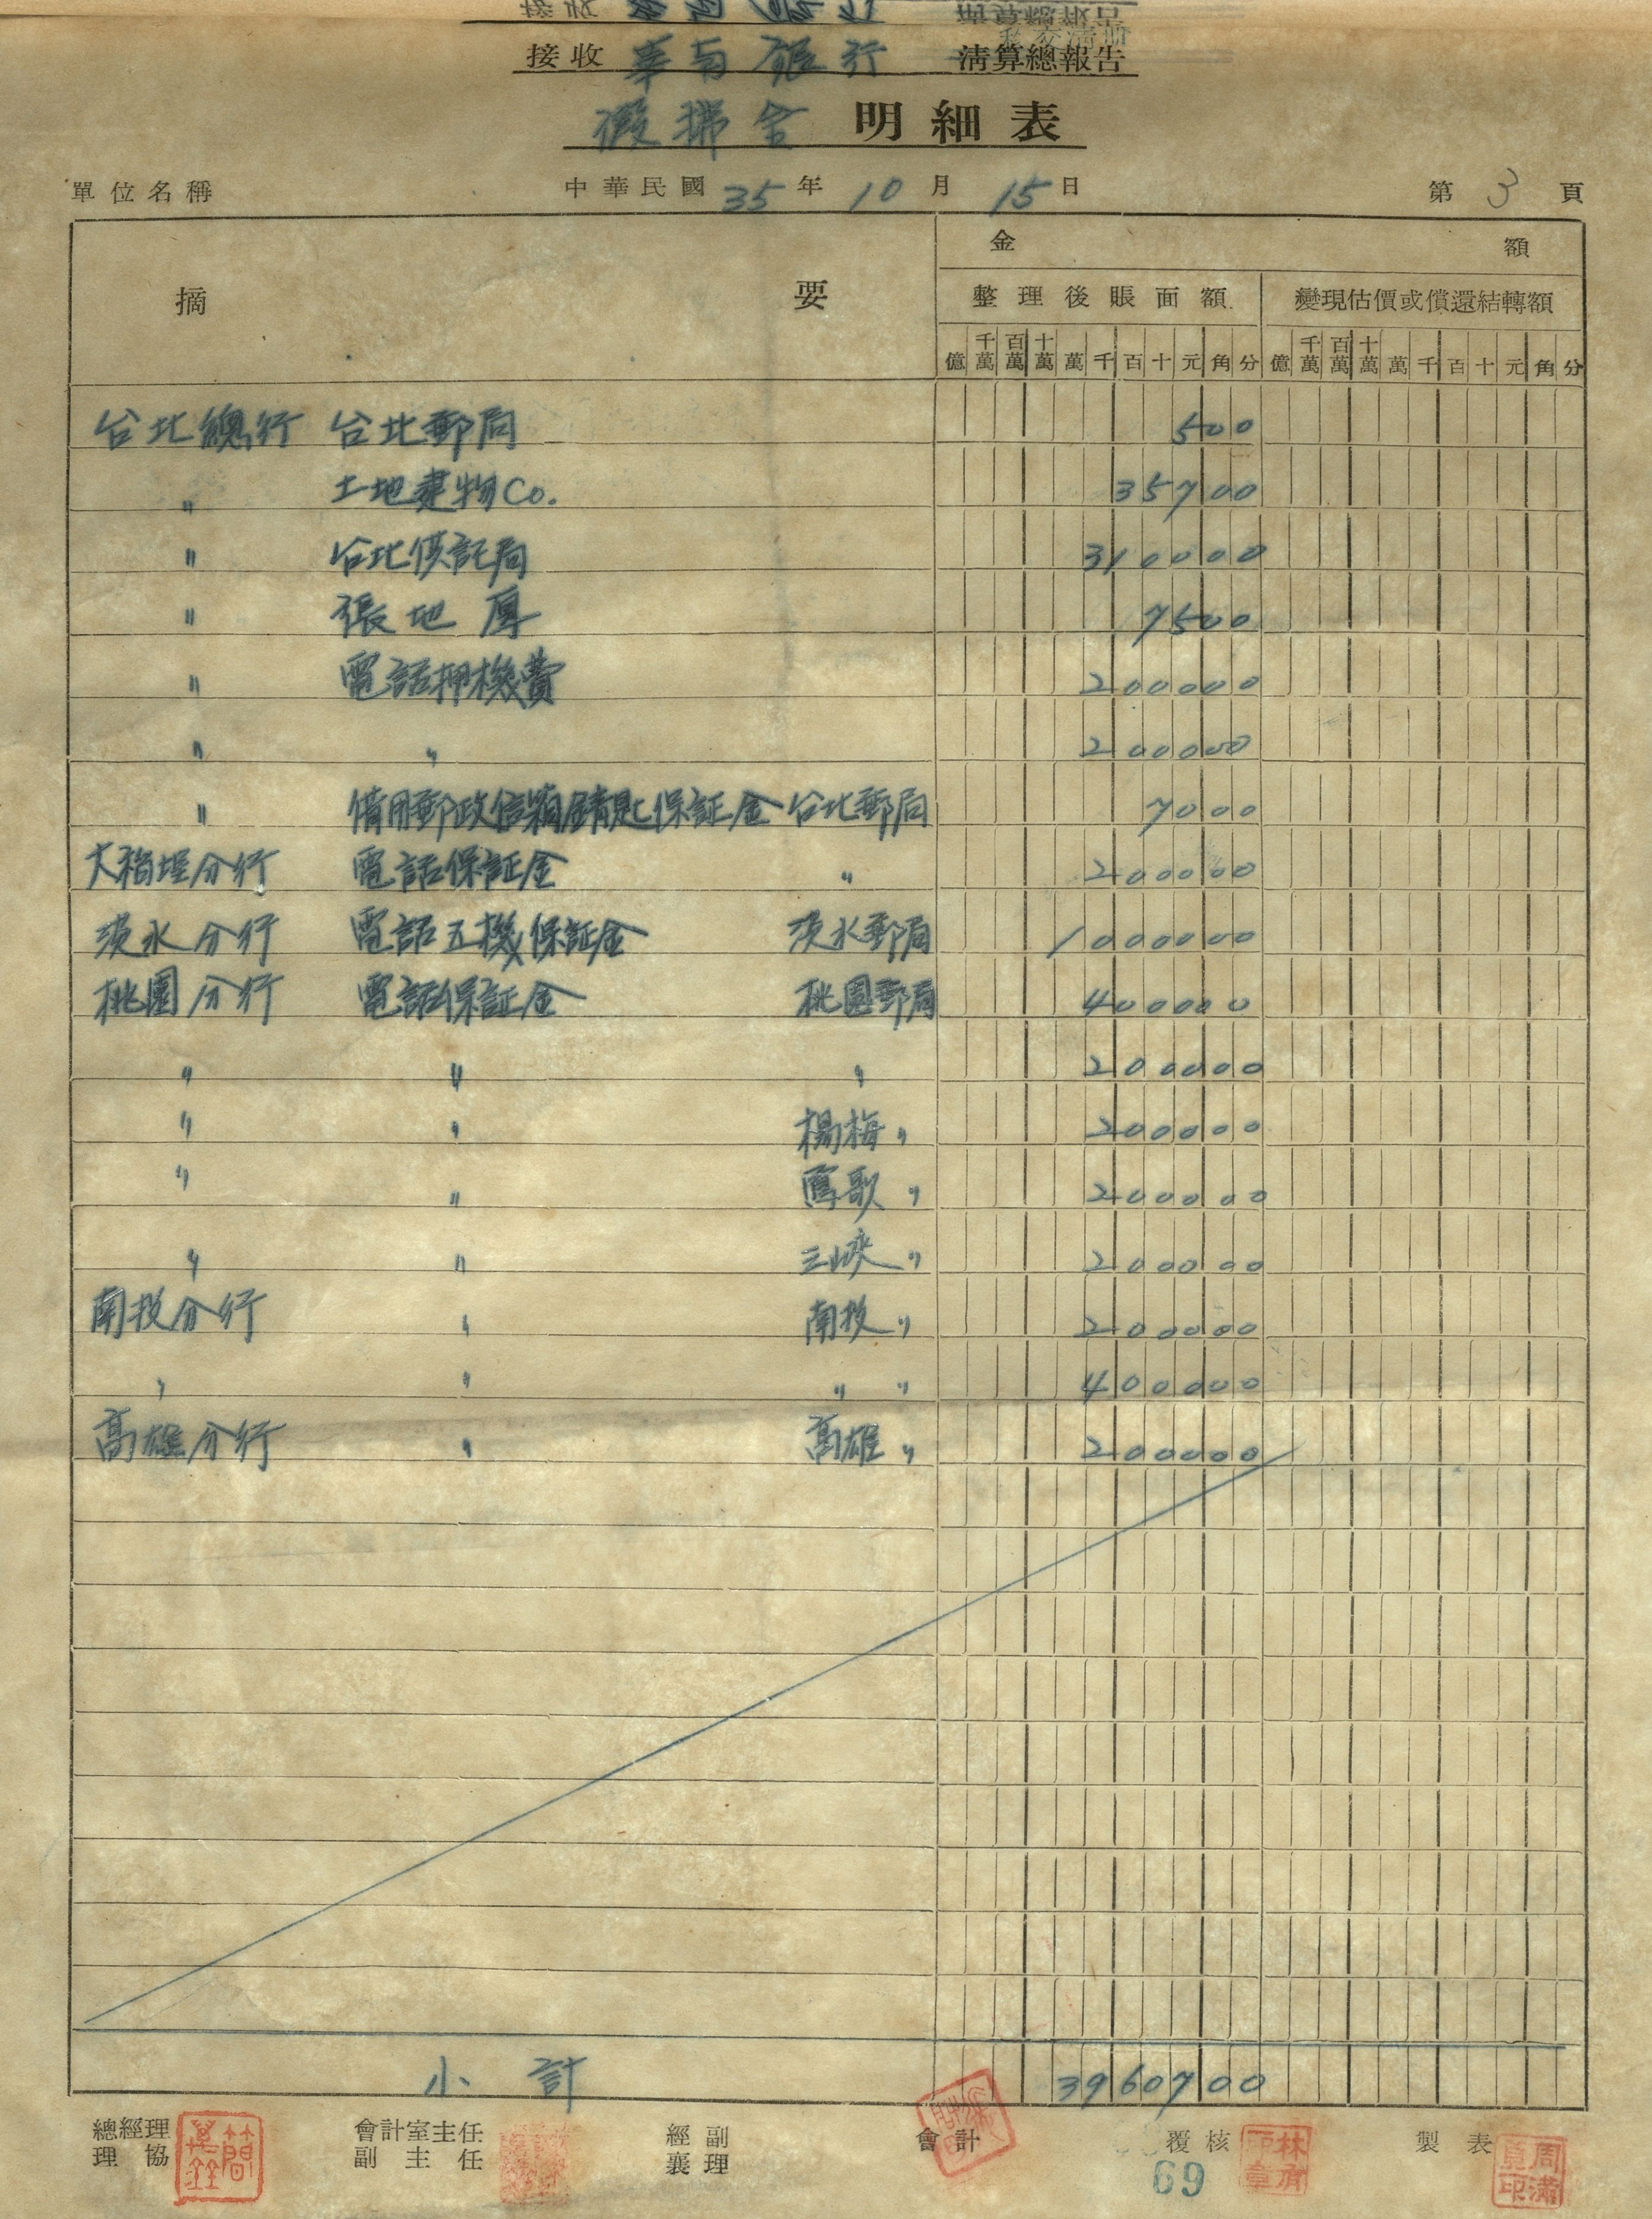 接收 華南銀行 清算總報告
假拂金 明細表
單位名稱 中華民國 35 年 10 月 15 日 第 3 頁
摘 要 金 額
整理後賬面額 變現估價或償還結轉額
億 千萬 百萬 十萬 萬 千 百 十 元 角 分 億 千萬 百萬 十萬 萬 千 百 十 元 角 分
台北總行 台北郵局 500
〃 土地建物Co. 35700
〃 台北供託局 310000
〃 張地厚 7500
〃 電話押機費 200000
〃 〃 200000
〃 借用郵政信箱鑰匙保証金 台北郵局 7000
大稻埕分行 電話保証金 〃 200000
淡水分行 電話五機保証金 淡水郵局 1000000
桃園分行 電話保証金 桃園郵局 400000
〃 〃 〃 200000
〃 〃 楊梅〃 200000
〃 〃 鶯歌〃 200000
〃 〃 三峽〃 200000
南投分行 〃 南投〃 200000
〃 〃 〃 〃 400000
高雄分行 〃 高雄〃 200000
小計 3960700
總經理 會計室主任 經副 會計 覆核 製表
理協 副主任 襄理
69